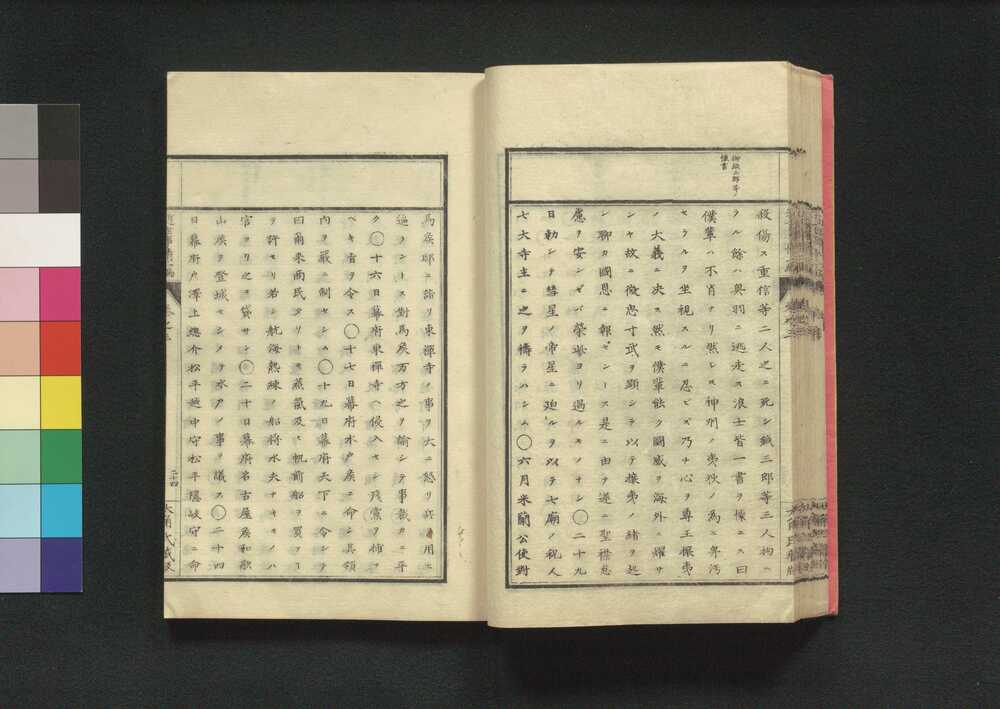 殺傷ス重信等二人之ニ死シ鉞三郎等三人拘ハ
ル餘ハ奥羽ニ逃走ス浪士皆一書ヲ懐ニス曰
僕輩ハ不肖ナリ然レㇳモ神州ノ夷狄ノ為ニ卑汚
セラルヲ坐視スルニ忍ビズ乃ナ心ヲ尊王攘夷
ノ大義ニ决ス然モ僕輩能ク國威ヲ海外ニ耀サ
ンヤ故ニ微忠寸武ヲ顕シテ以テ攘夷ノ緒ヲ起
シ聊カ國恩ニ報ゼントス是ニ由テ遂ニ聖襟怠
慮ヲ安ンゼバ榮 ヨリ過ルモノナシ〇二十九
日勅シテ彗星ノ帝星ニ廹ルヲ以テ七廟ノ祝人
七大寺主ニ之ヲ禱ラハシム〇六月米蘭公使對
馬矦邸ニ詣リ東禪寺ノ事ヲ大ニ怒リ兵ヲ用ニ
逼ラントス對馬矦万方之ヲ諭シテ事裁カニ平
ク〇十六日幕府東禪寺ヘ侵入セシ残黨ヲ捕フ
ベキ旨ヲ令ス〇十七日幕府水戸矦ニ命シ其領
内ヲ嚴ニ制セシム〇十九日幕府天下ニ令シテ
曰爾来商民タリトモ蒸氣及ヒ帆前船ヲ買フヿ
ヲ許セリ若シ航海熟練ノ船将水夫ナキモノハ
官ヨリ之ヲ貸サン〇二十日幕府名古屋矦和歌
山矦ヲ登城セシメテ水戸ノ事ヲ議ス〇二十四
日幕府戸澤上總介松平越中守松平隱岐守ニ命
二十四